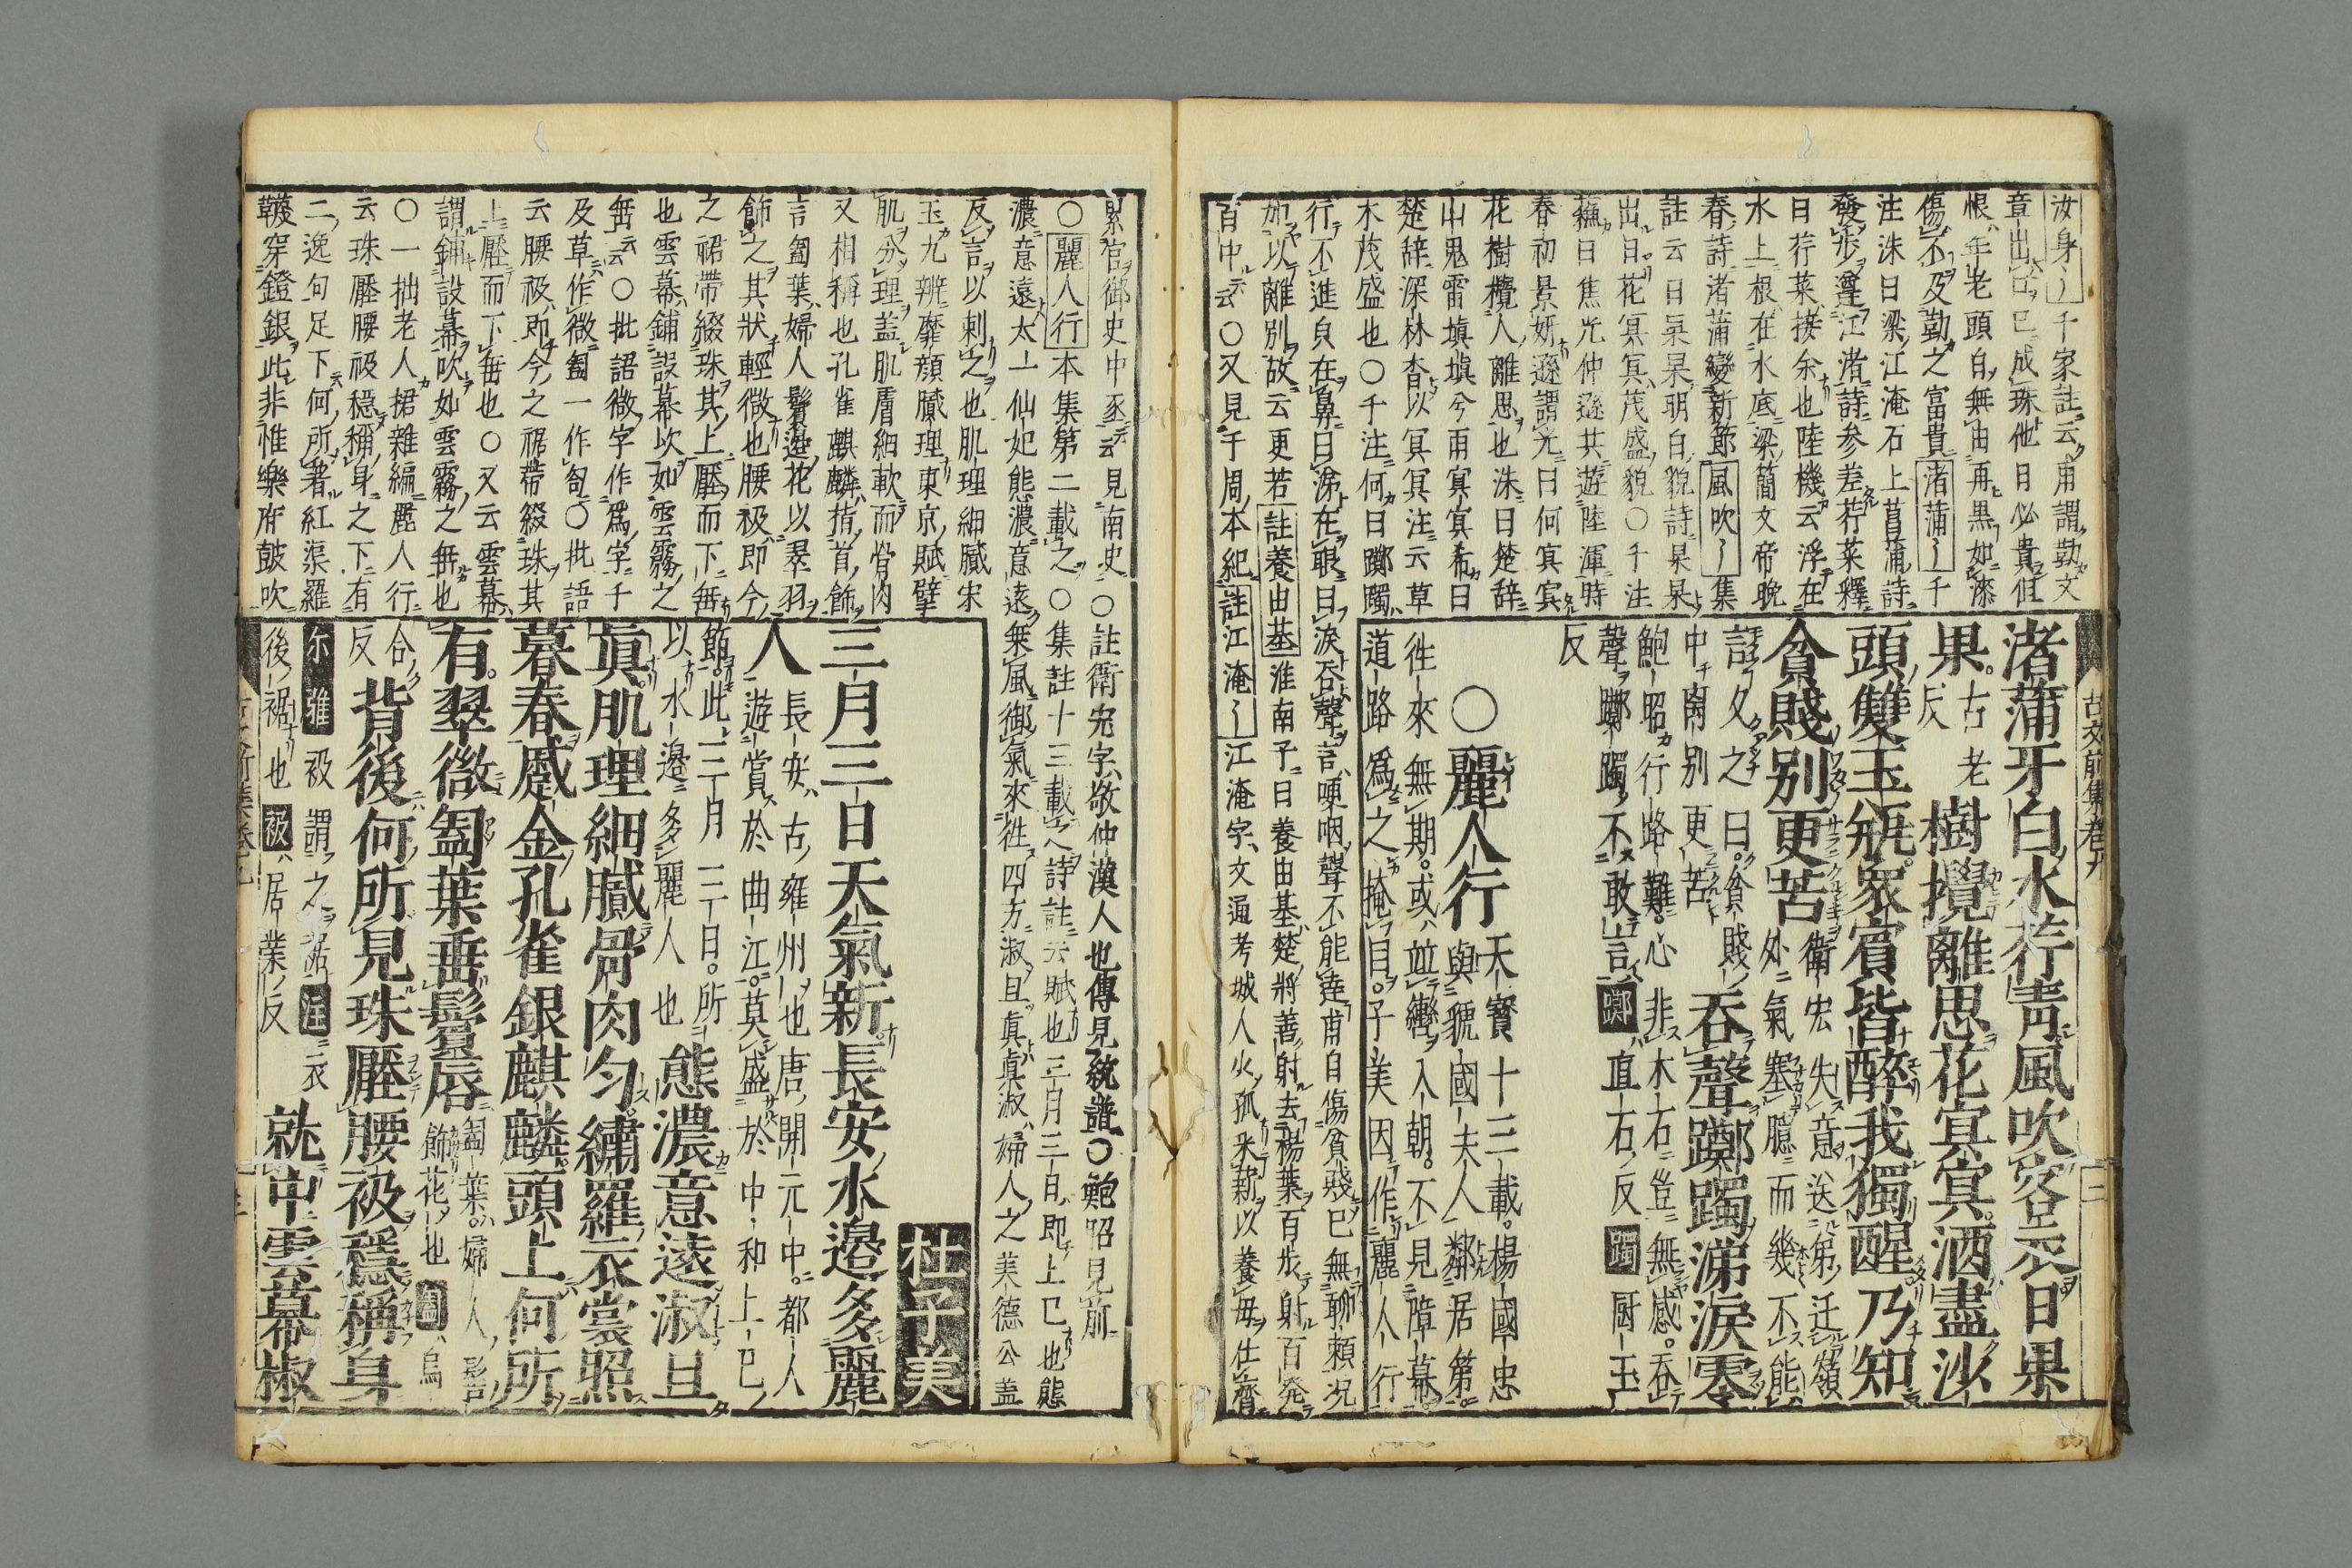 汝身〻千家註云甫謂勤文
章出言已成珠他日必貴但
恨年老頭白無由再黒如漆
傷不及勤之富貴渚蒲〻千
注洙曰梁江淹石上菖蒲詩
發歩遵江渚詩参差荇菜釋
曰荇菜接余也陸機云浮在
水上根在水底梁簡文帝晩
春詩渚蒲變新節風吹〻集
註云日杲杲明白貌詩杲杲
出日花冥冥茂盛貌〇千注
蘓曰焦光仲遜共遊陸渾時
春初景妍遜謂光曰何冥冥
花樹攪人離思也洙曰楚辞
山鬼雷塡塡兮雨冥冥希曰
楚辞深林杳以冥冥注云草
木茂盛也〇千注何曰躑躅
行不進貞在鼻曰涕在眼曰淚呑聲言哽咽聲不能達甫自傷貧賤已無聊頼况
加以離別故云更若註養由基淮南子曰養由基楚將善射去楊葉百歩射百発
百中云〇又見千周本紀註江淹〻江淹字文通考城人火孤釆薪以養母仕齊
古文前集卷九
渚蒲牙白水荇青風吹客衣日杲
果。古老反樹攪離思花冥冥酒盡沙
頭雙玉瓶衆賓皆醉我獨醒乃知
貧賤別更苦衛宏失意送弟迁嶺
处氣塞臆而幾不能
呑聲躑躅涕淚零
詔父之曰。貧賤
中啇別更苦
鮑昭行路難。心非木石豈無感。呑
聲躑躅不敢言躑直石反躅厨玉
反
〇麗人行天寶十三載。楊國忠
與虢國夫人鄰居第。
徃來無期。或並轡入朝。不見障幕
道路爲之掩目。子美因作麗人行
累官御史中丞云見南史〇註衛宏字敬仲漢人也傳見統譜〇鮑昭見前
〇麗人行本集第二載之〇集註十三載之詩註云賦也三月三日即上巳也態
濃意遠太一仙妃態濃意遠乗風御氣來徃四方淑且眞眞淑婦人之美德公盖
反言以刺之也肌理細膩宋
玉九辨靡顔膩理東京賦擘
肌分理盖肌膚細軟而骨肉
又相稱也孔雀麒麟指首飾
言㔩葉婦人鬢邊花以翠羽
飾之其狀輕微也腰衱即今
之裙帶綴珠其上壓而下無
也雲幕鋪設幕次如雲霧之
無云〇批語微字作爲字千
及草作微㔩一作㔩〇批語
云腰衱即今之裙帶綴珠其
上壓而下垂也〇又云雲幕
謂鋪設幕吹如雲霧之垂也
〇一拙老人捃雜編麗人行
云珠壓腰衱穏稱身之下有
二逸句足下何所著紅渠羅
韈穿鐙銀此非惟樂府皷吹
杜子美
三月三日天氣新長安水邊多麗
人長安古雍州也唐開元中。都人
遊賞於曲江。莫盛於中和上巳
節此三月三日。所
以水邊多麗人也
態濃意遠淑且
眞肌理細膩骨肉匀繡羅衣裳照
暮春蹙金孔雀銀麒麟頭上何所
有。翠微㔩葉垂鬢唇㔩葉。婦人髻
飾花也㔩烏
合反背後何所見珠壓腰衱穩稱身
尓雅衱謂之裾注衣
後裾也衱居業反
就中雲幕椒